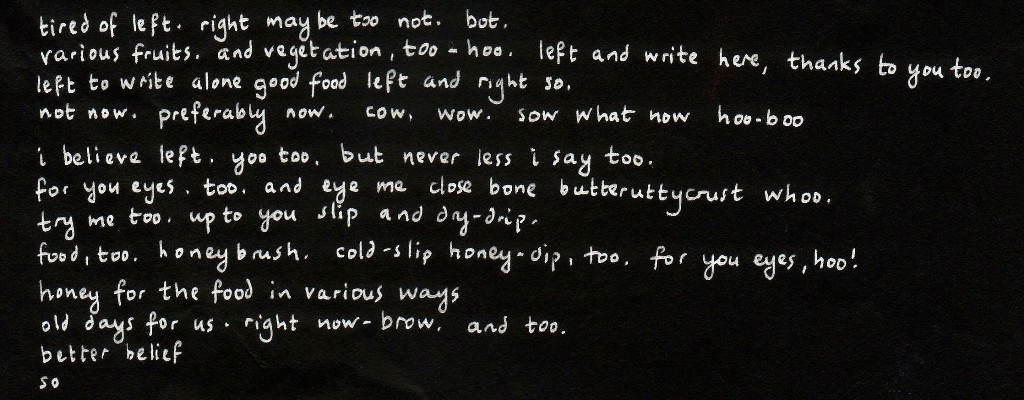 tired of left. right maybe too not. bot.
various fruits. and vegetation, too-hoo. left and write here, thanks to you too.
left to write alone good food left and right so.
not now. preferably now. cow. wow. sow what now hoo-boo
i believe left. yoo too. but never less i say too.
for you eyes. too. and eye me close bone butteruttycrust whoo.
try me too. up to you slip and dry-drip.
food, too. honeybrush. cold-slip honey-dip, too. for you eyes, hoo!
honey for the food in various ways
old days for us. right now-brow. and too.
better belief
so